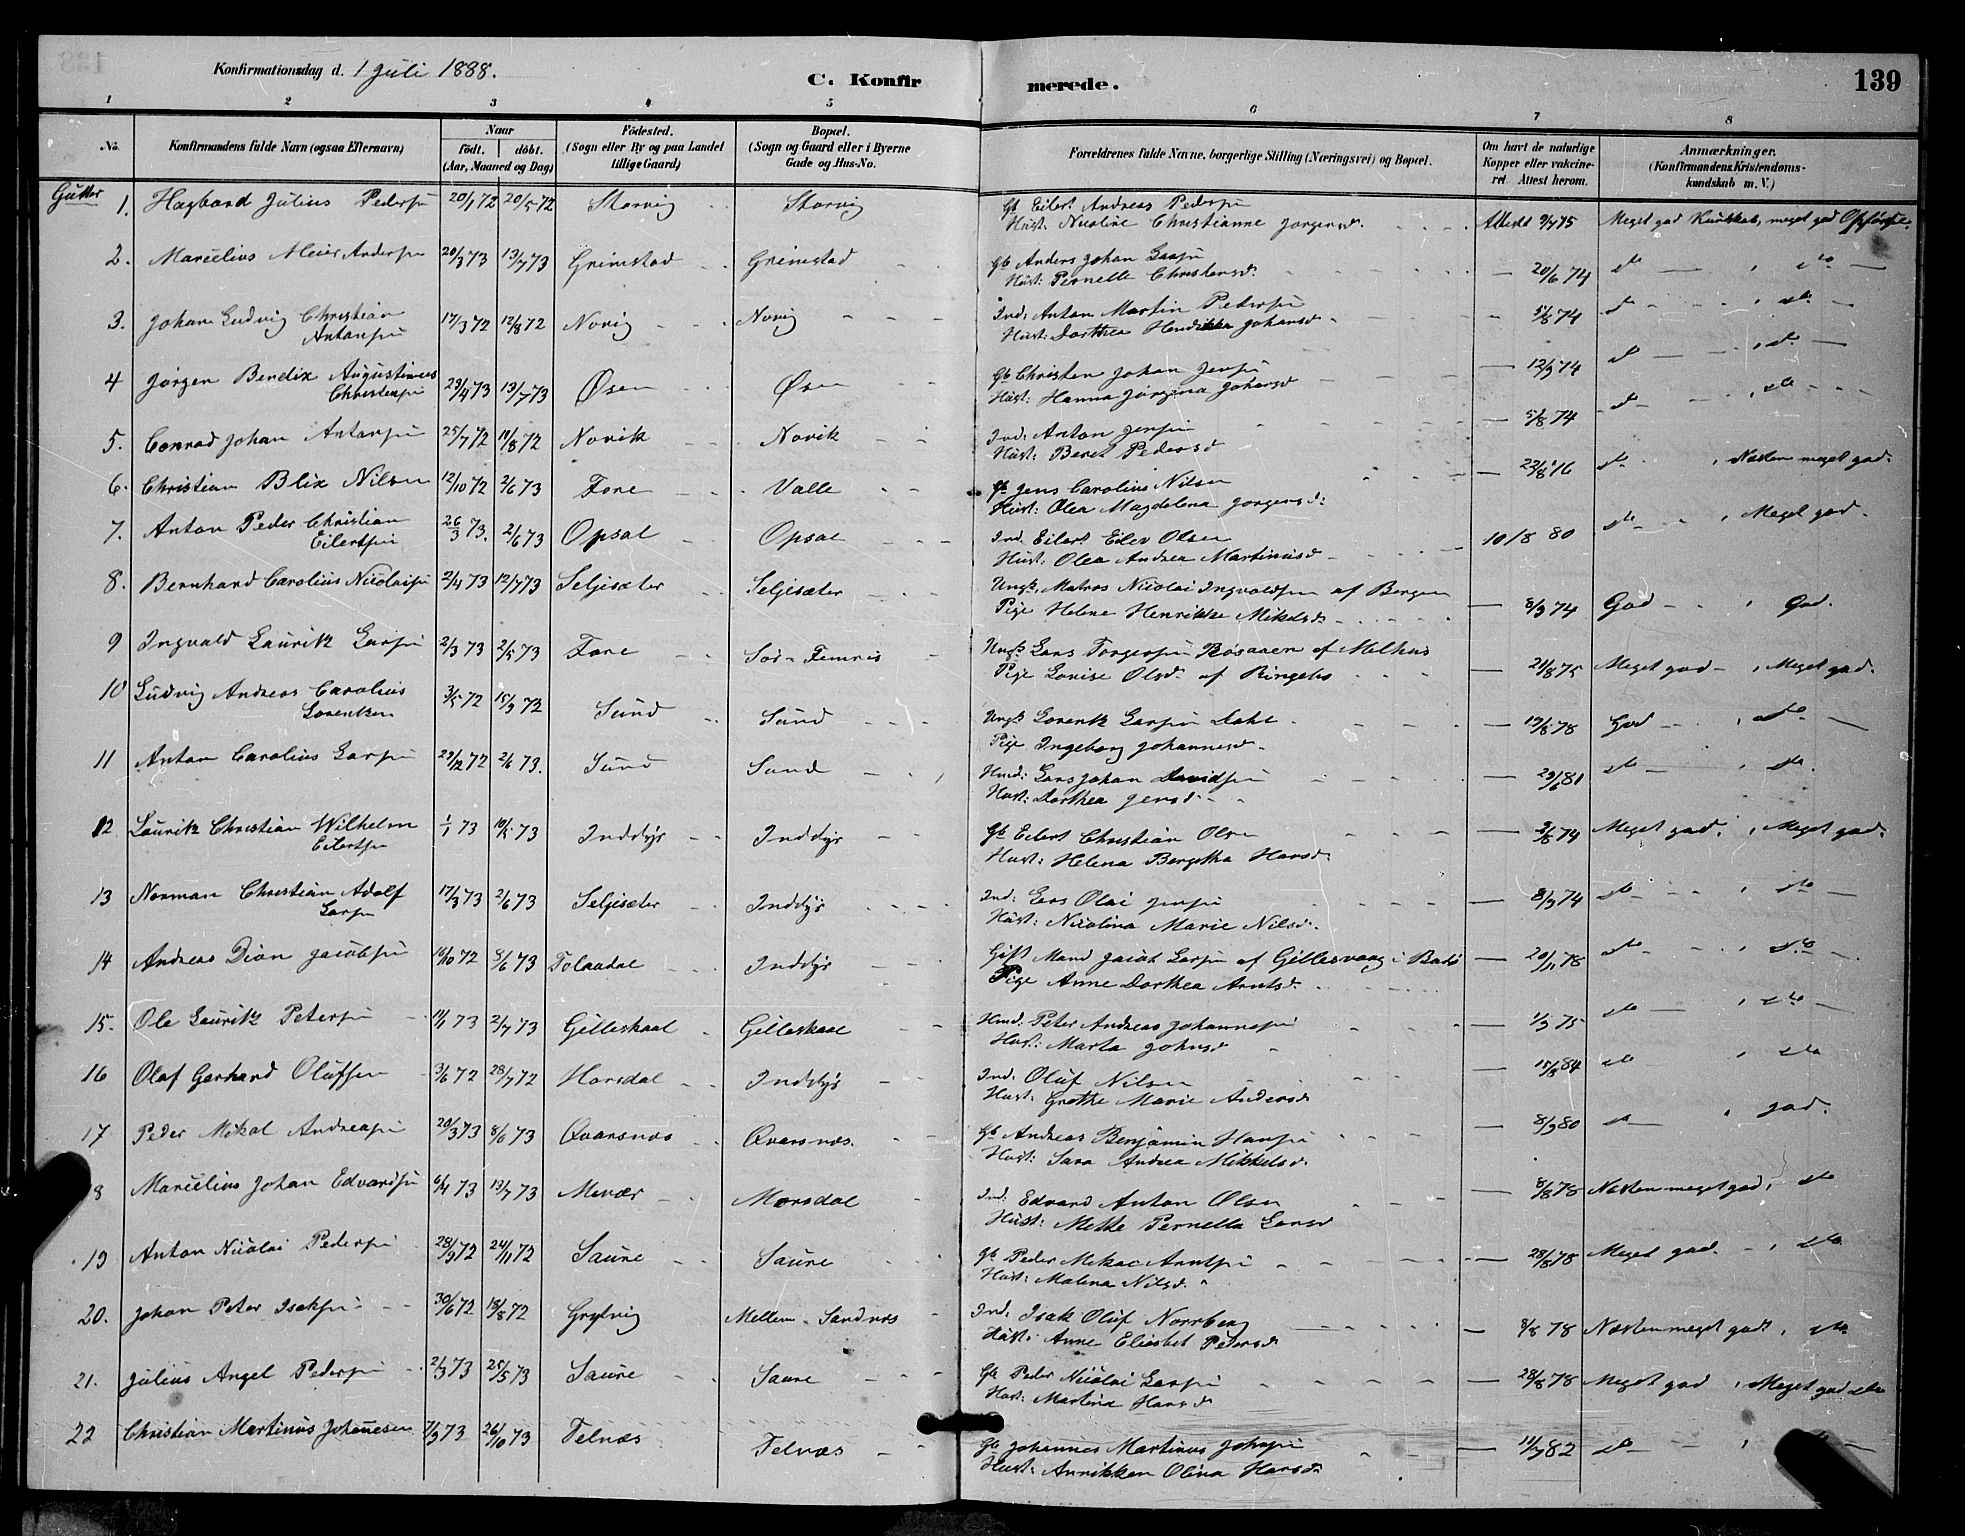 Konfirmationsdag d. 1 Juli 1888.
C. Konfir
merede.
139
1 2 3 4 5 6 7 8
No.
Konfirmandens fulde Navn (ogsaa Efternavn)
Naar
født. døbt.
(Aar, Maaned og Dag)
Fødested.
(Sogn eller By og paa Landet
tillige Gaard)
Bopæl.
(Sogn og Gaard eller i Byerne
Gade og Hus-No.
Forældrenes fulde Navne, borgerlige Stilling (Næringsvei) og Bopæl.
Om havt de naturlige
Kopper eller vakcine-
ret. Attest herom.
Anmærkninger.
(Konfirmandens Kristendoms-
kundskab m. V.)
Gutter
1. Hagbard Julius Pedersen 20/1 72 20/5 72 Storvig Storvig Gb Eilert Andreas Pedersen Attest 9/7 75 Meget god Kundskab, meget god Opførsel.
Hust: Nicoline Christianne Jørgensd.
2. Marcelius Meier Andersen 20/3 73 13/7 73 Grimstad Grimstad Gb Anders Johan Larsen 20/6 74 do do
Hust: Pernelle Christensd.
3. Johan Ludvig Christian 17/3 72 12/8 72 Novig Novig Ind: Anton Martin Pedersen 5/8 74 do do
Antonsen Hust: Dorthea Hendrikka Johansd.
4 Jørgen Bendix Augustinus 23/4 73 13/7 73 Øsen Øsen Gb Christen Johan Jensen 12/9 74 do do
Christensen Hust: Hanna Jørgina Johansd
5. Conrad Johan Antonsen 25/7 72 18/8 72 Novik Novik Ind: Anton Jensen 5/8 74 do do
Hust: Beret Pedersd
6. Christian Blix Nilsen 12/10 72 2/6 73 Fore Valle Gb Jens Carolius Nilsen 22/8 76 do Næsten meget god.
Hust: Olea Magdelena Jørgensd:
7. Anton Peder Christian 26/3 73. 2/6 73 Opsal Opsal Ind. Eilert Edev Olsen 10/8 80 do Meget god.
Eilertsen Hust: Olea Andrea Martinusd
8. Bernhard Carolius Nicolaisen 2/4 73 12/7 73 Seljesæter Seljesæter Ungk. Matros Nicolai Ingvaldsen af Bergen 8/9 74 God God.
Pige Helene Henrikke Mikelsd
9 Ingvald Laurik Larsen 2/3 73 2/5 73 Fore Sør-Femris Ungk Lars Torgersen Røsaaen af Melhus 21/8 75 Meget god Meget god.
Pige Lovise Olsd. af Ringebo
10 Ludvig Andreas Carolius 3/5 72 15/9 72 Sund Sund Ungk Lorentz Larsen Dahl 19/8 78 God do
Lorentzen Pige Ingeborg Johannesd.
11 Anton Carolius Larsen 29/12 72 2/6 73. Sund Sund Hmd: Lars Johan Davidsen 29/6 81 do do.
Hust: Dorthea Jensd.
12 Laurik Christian Wilhelm 1/1 73 10/5 73 Inddyr Inddyr Gb Eilert Christian Olsen 9/8 74 Meget god, Meget god.
Eilertsen Hust: Helena Bergetha Hansd
13 Norman Christian Adolf 17/3 73 2/6 73 Seljesæter Inddyr Ind: Lars Olai Jensen 8/9 74 do do
Larsen Hust: Nicolina Marie Nilsd.
14 Andreas Dion Jacobsen 10/10 72 8/6 73 Tolaadal Inddyr Gift Mand Jacob Larsen af Gillesvaag i Bodø 20/11 78 do do
Pige Anne Dorthea Arntsd.
15. Ole Laurik Petersen 11/1 73 2/7 73 Gilleskaal Gilleskaal Hmd: Peter Andreas Johannesen 1/9 75 do do
Hust: Marta Johnsd
16 Olaf Gerhard Olufsen 3/6 72 28/7 72 Horsdal Inddyr Ind: Oluf Nilsen 15/8 84 do do
Hust: Grethe Marie Andersd
17 Peder Mikal Andreasen 20/3 73 8/6 73 Øvarsnes Øvarsnes. Gb Andreas Benjamin Hansen 8/9 80 do god.
Hust: Sara Andrea Mikkelsd.
8 Marcelius Johan Edvardsen 6/4 73 13/7 73 Mevær Mørsdal Ind: Edvard Anton Olsen 8/8 78 Næsten meget god, do
Hust: Mette Pernella Larsd
19 Anton Nicolai Pedersen 28/9 72 24/11 72 Saure Saure Gb Peder Mekal Arntsen 28/8 78 Meget god. do
Hust: Malena Nilsd.
20. Johan Peter Isaksen 30/6 72 18/8 72 Grytvig Mellem-Sandnes Ind: Isak Oluf Norrberg 8/8 78 Næsten meget god. do
Hust: Anne Elisbet Pedersd
21. Julius Angel Pedersen 2/3 73 25/5 73 Saure Saure Gb Peder Nicolai Larsen 28/8 78 Meget god Meget god do
Hust: Martina Hansd
22 Christian Martinus Johannesen 7/9 73 26/10 73 Telnæs Telnæs Gb Johannes Martinus Johnsen 11/7 82 do do
Hust: Annikken Olina Hansd